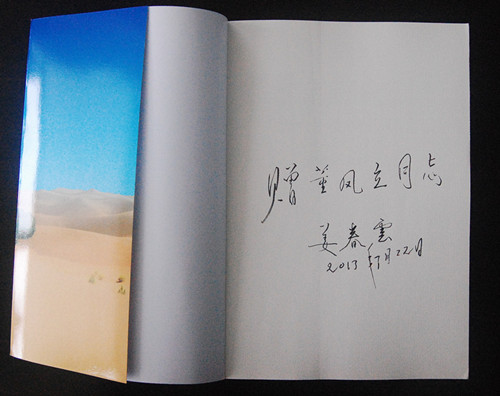 赠董风立同志
姜春雲
2013年7月22日